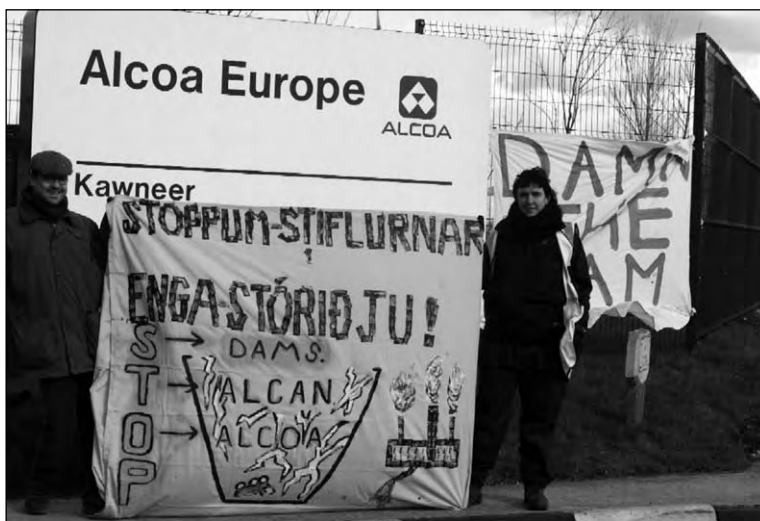 Alcoa Europe
ALCOA
Kawneer
STOPPUM-STIFLURNAR
ENGA-STÓRIÐJU!
STOP
DAMS.
ALCAN
ALCOA
DAMN
THE
DAM